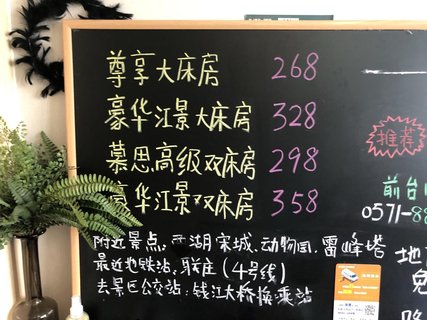 尊享大床房 268
豪华江景大床房 328
慕思高级双床房 298
豪华江景双床房 358
附近景点：西湖、宋城、动物园、雷峰塔
最近地铁站：联庄（4号线）
去景区公交站：钱江大桥换乘站
推荐
前台
0571-88
地
免